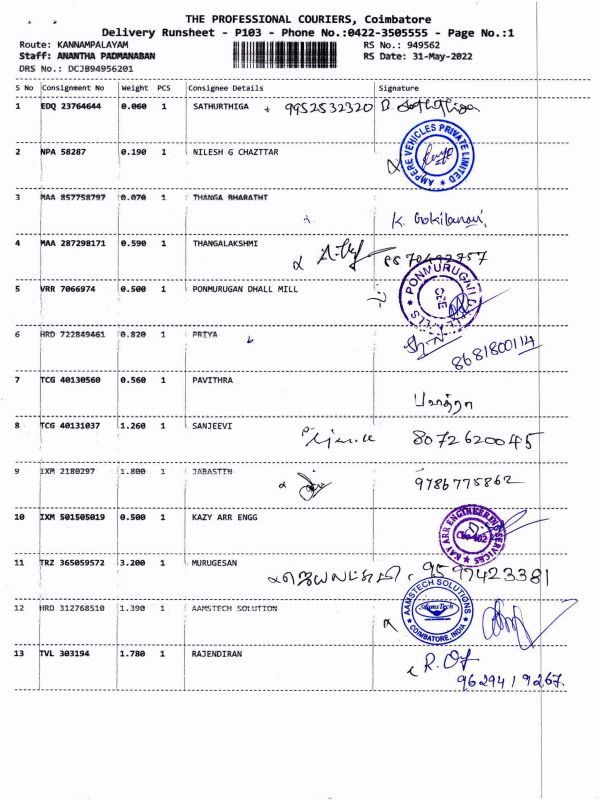 THE PROFESSIONAL COURIERS, Coimbatore
Delivery Runsheet - P103 - Phone No.:0422-3505555 - Page No.:1
Route: KANNAMPALAYAM RS No.: 949562
Staff: ANANTHA PADMANABAN RS Date: 31-May-2022
DRS No.: DCJB94956201
S No Consignment No Weight PCS Consignee Details Signature
1 EDQ 23764644 0.060 1 SATHURTHIGA 9952532320
2 NPA 58287 0.190 1 NILESH G CHAZTTAR
AMPERE VEHICLES PRIVATE LIMITED
3 MAA 857758797 0.070 1 THANGA BHARATHI
4 MAA 287298171 0.590 1 THANGALAKSHMI
5 VRR 7066974 0.500 1 PONMURUGAN DHALL MILL
PONMURUGAN
6 HRD 722849461 0.820 1 PRIYA
8681800114
7 TCG 40130560 0.560 1 PAVITHRA
பவித்ரா
8 TCG 40131037 1.260 1 SANJEEVI
8072620045
9 IXM 2180297 1.800 1 JABASTIN
9786775862
10 IXM 501505019 0.500 1 KAZY ARR ENGG
KAY ARR ENGINEERING SERVICES
11 TRZ 365059572 3.200 1 MURUGESAN
9597423381
12 HRD 312768510 1.390 1 AAMSTECH SOLUTION
AAMSTECH SOLUTIONS
AamsTech
COIMBATORE, INDIA
13 TVL 303194 1.780 1 RAJENDIRAN
9629419267.